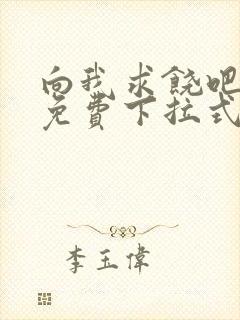 向我求饶吧
免費下拉式
李玉偉